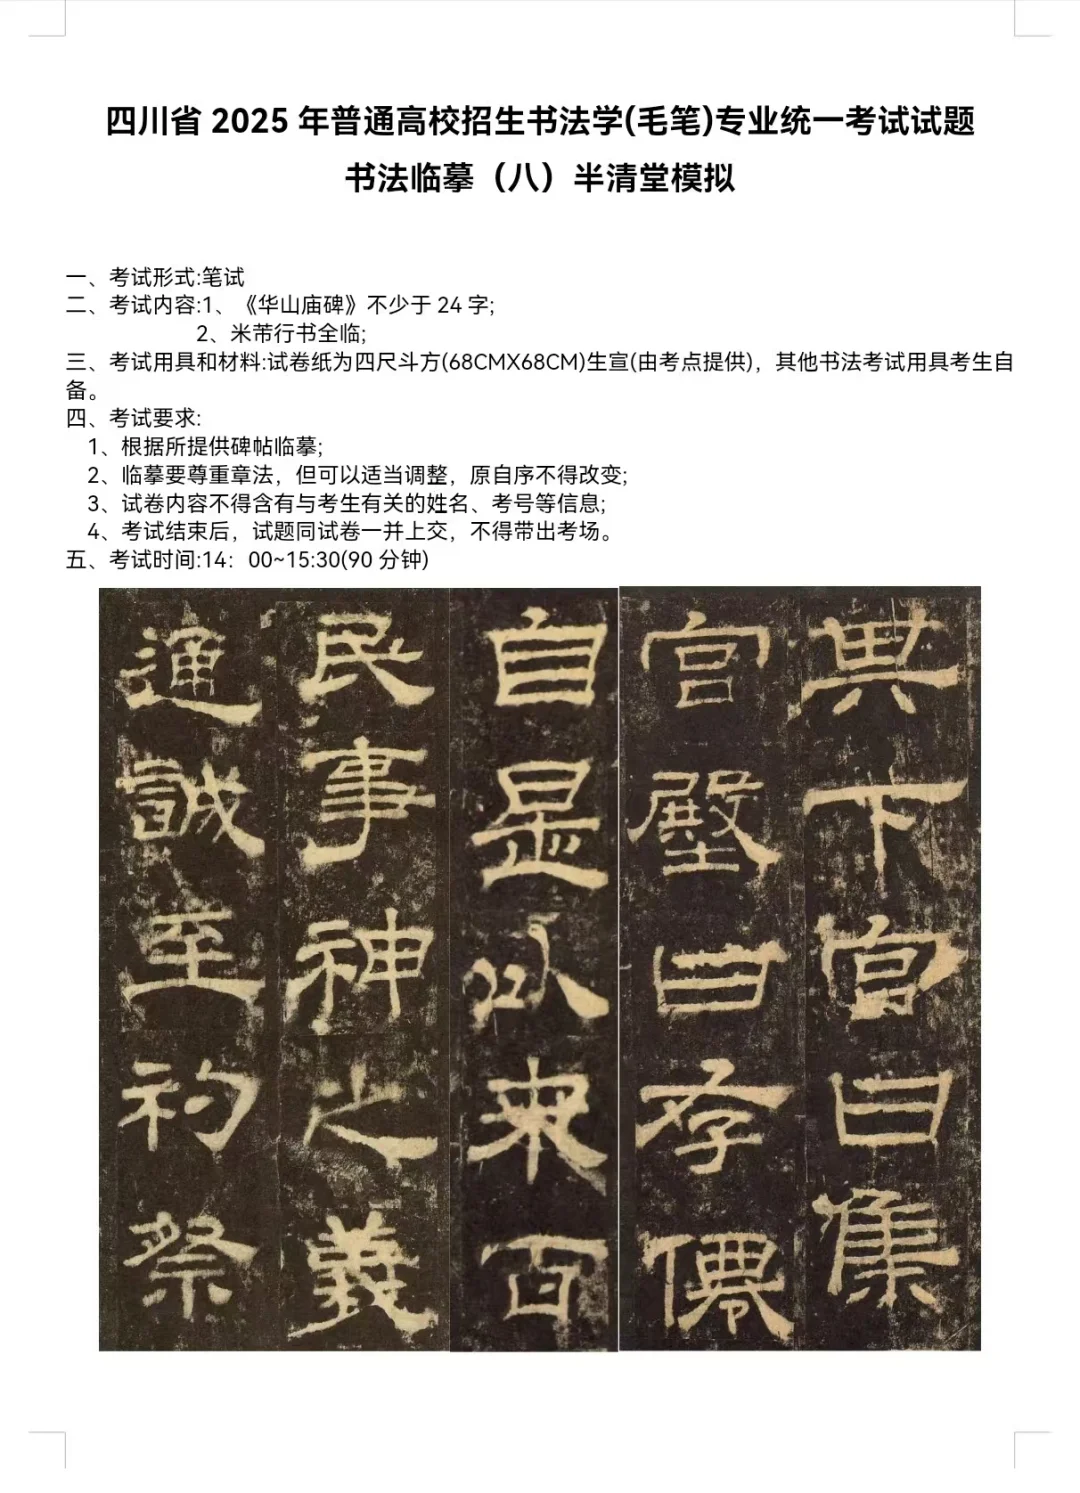 四川省 2025 年普通高校招生书法学(毛笔)专业统一考试试题
书法临摹（八）半清堂模拟
一、考试形式:笔试
二、考试内容:1、《华山庙碑》不少于 24 字;
2、米芾行书全临;
三、考试用具和材料:试卷纸为四尺斗方(68CMX68CM)生宣(由考点提供)，其他书法考试用具考生自
备。
四、考试要求:
1、根据所提供碑帖临摹;
2、临摹要尊重章法，但可以适当调整，原自序不得改变;
3、试卷内容不得含有与考生有关的姓名、考号等信息;
4、考试结束后，试题同试卷一并上交，不得带出考场。
五、考试时间:14：00~15:30(90 分钟)
其下宫曰集
宫殿曰存僊
自是以来百
民事神之義
通誠至礿祭